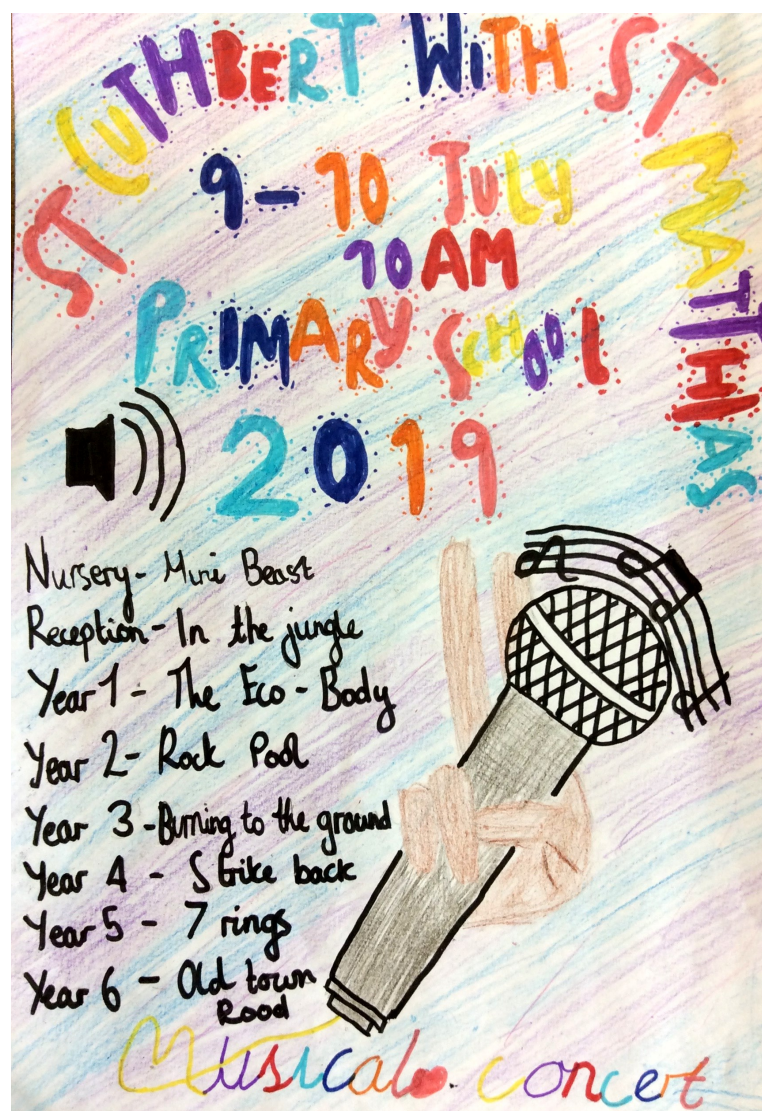 ST CUTHBERT WITH ST MATTHIAS
9-10 July
10AM
PRIMARY SCHOOL
2019
Nursery - Mini Beast
Reception - In the jungle
Year 1 - The Eco - Body
Year 2 - Rock Pool
Year 3 - Burning to the ground
Year 4 - Strike back
Year 5 - 7 rings
Year 6 - Old town
Rood
Musical concert